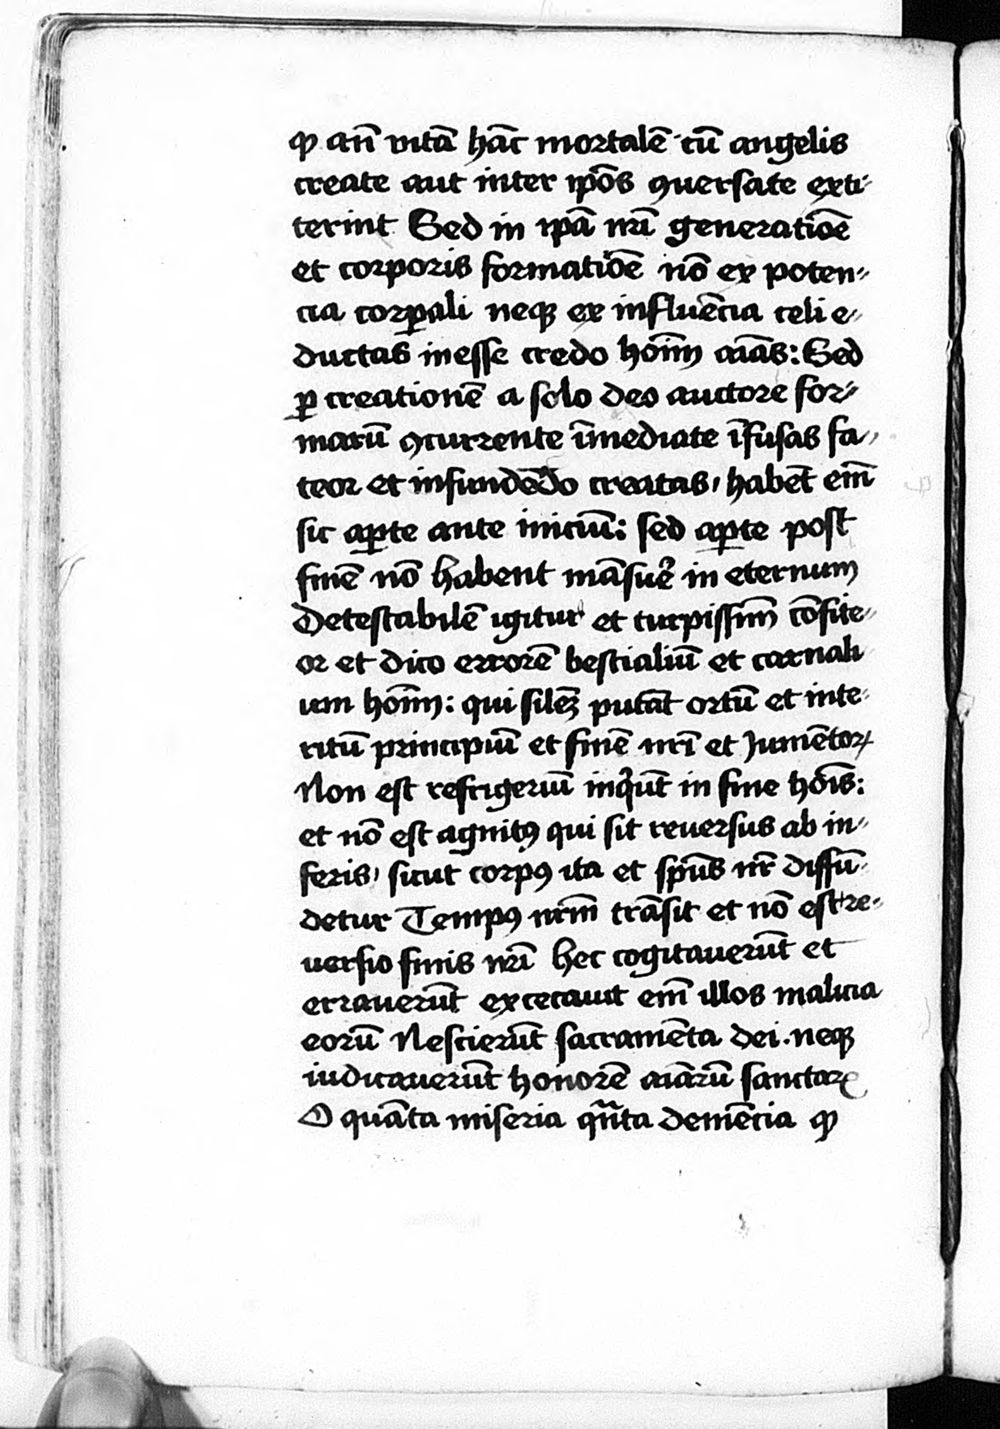 ꝙ an̄ vitā hāc mortalē cū angelis
create aut inter ip̄os ꝯuersate exti⸗
terint Sed in ip̄a nr̄i generatiōe
et corporis formatiōe nō ex poten⸗
cia corꝑali neqꝫ ex influēcia celi e⸗
ductas inesse credo hoīm aīas: Sed
ꝑ creationē a solo deo auctore for⸗
marū ꝯcurrente īmediate īfusas fa⸗
teor et infundēdo creatas, habēt em̄
sic aꝑte ante iniciū: sed aꝑte post
finē nō habent māsuē in eternum
Detestabilē igitur et turpissim̄ cōfite⸗
or et dico errorē bestialiū et carnali
um hoīm: qui silēꝫ putāt ortū et inte⸗
ritū principiū et finē nr̄i et Jumētoꝝ
Non est refrigeriū inqͥūt in fine hoīs:
et nō est agnitꝯ qui sit reuersus ab in⸗
feris, sicut corpꝯ ita et sp̄us nr̄ diffū⸗
detur Tempꝯ nr̄m trāsit et nō est re⸗
uersio finis nr̄i hec cogitauerūt et
errauerūt excecauit em̄ illos malicia
eorū Nescierūt sacramēta dei. neqꝫ
iudicauerūt honorē aīarū sanctaꝝ
O quāta miseria qn̄ta demēcia ꝙ